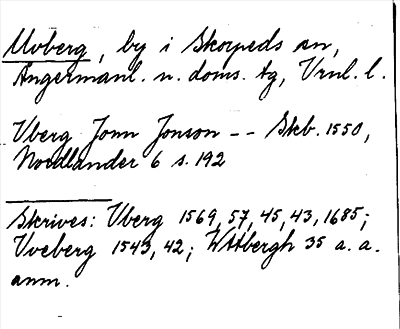 Uvberg, by i Skorpeds sn,
Ångermanl. n. doms. tg, Vrnl. l.
Vberg Jonn Jonson -- Skb. 1550,
Nordlander 6 s. 192
Skrives: Vberg 1569, 57, 45, 43, 1685;
Vveberg 1543, 42; 35 a. a.
anm.